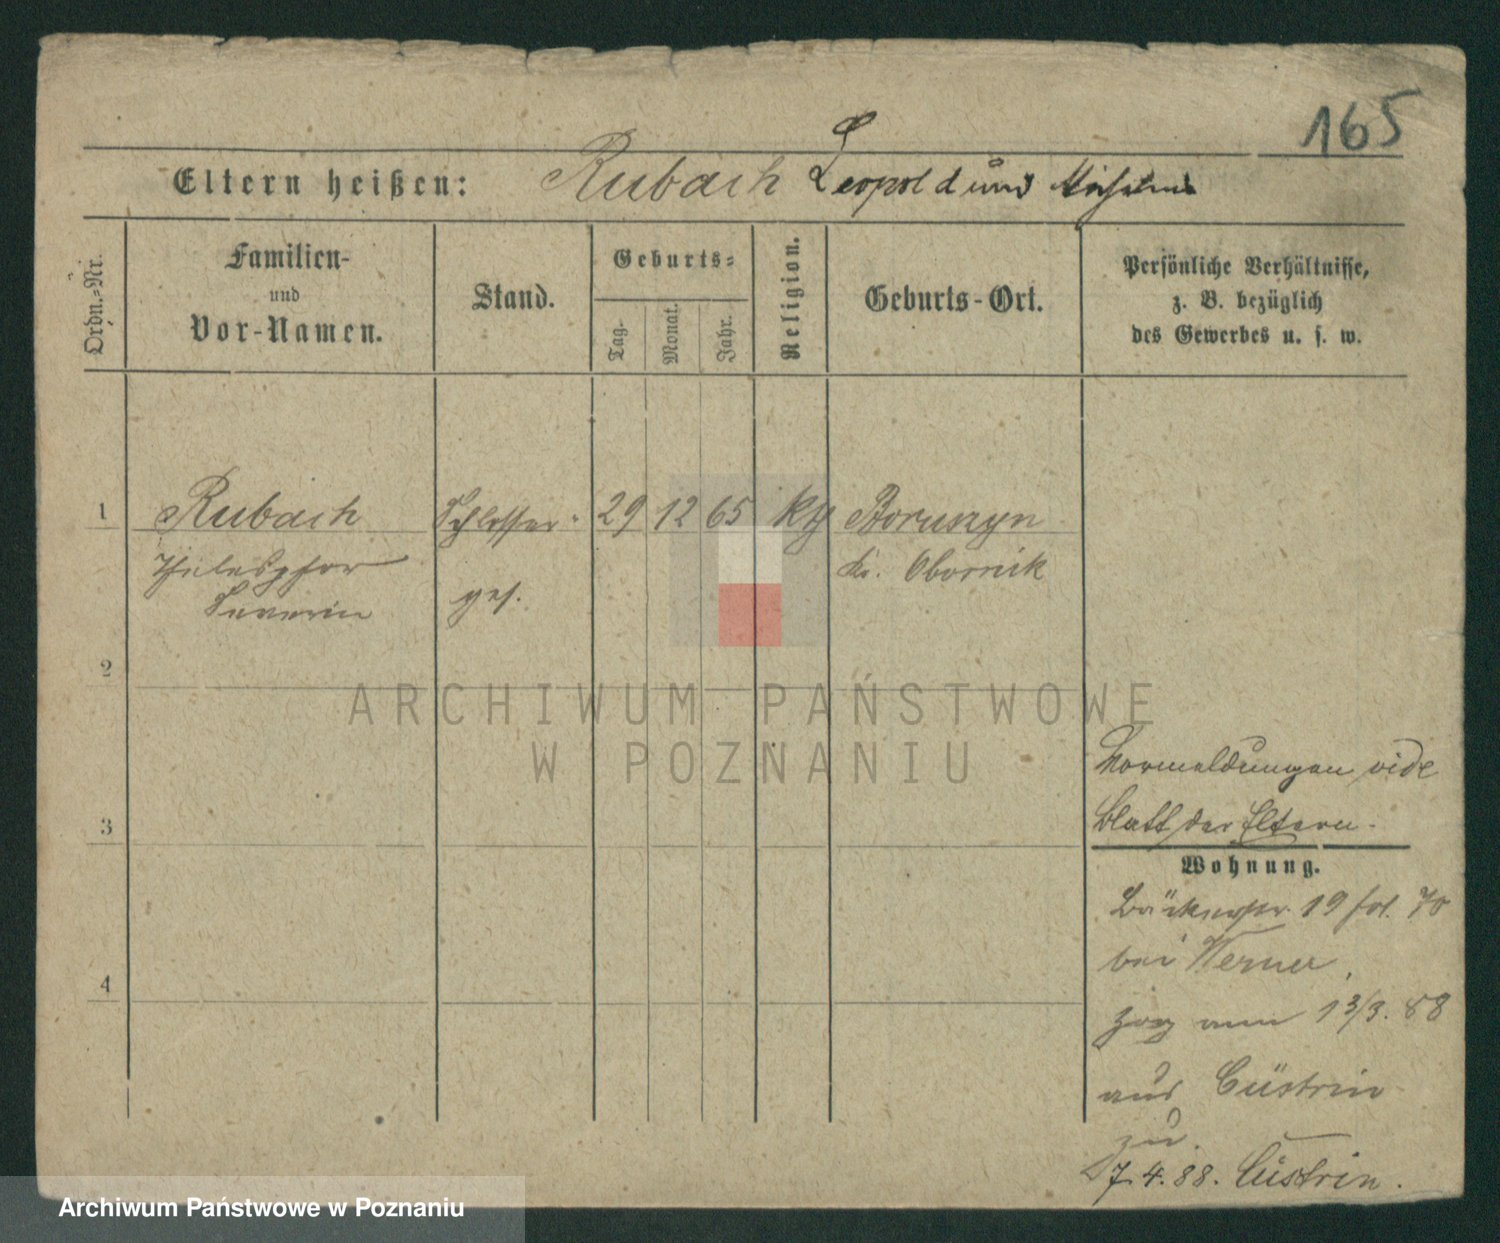 165
Eltern heißen: Rubach Leopold und
Ordn.-Nr.
Familien-
und
Vor-Namen.
Stand.
Geburts-
Tag.
Monat.
Jahr.
Religion.
Geburts-Ort.
Persönliche Verhältnisse,
z. B. bezüglich
des Gewerbes u. s. w.
1 Rubach Schlosser- 29 12 65 kth Boruszyn
Thelesphor ges. Kr. Obornik
Severin
2
3
4
ARCHIWUM PAŃSTWOWE
W POZNANIU
Vormeldungen vide
Blatt der Eltern.
Wohnung.
Bäckerstr. 19 fol. 70
bei Werner,
zog am 13/3. 88
aus Cüstrin
zu.
7.4.88. Cüstrin.
Archiwum Państwowe w Poznaniu